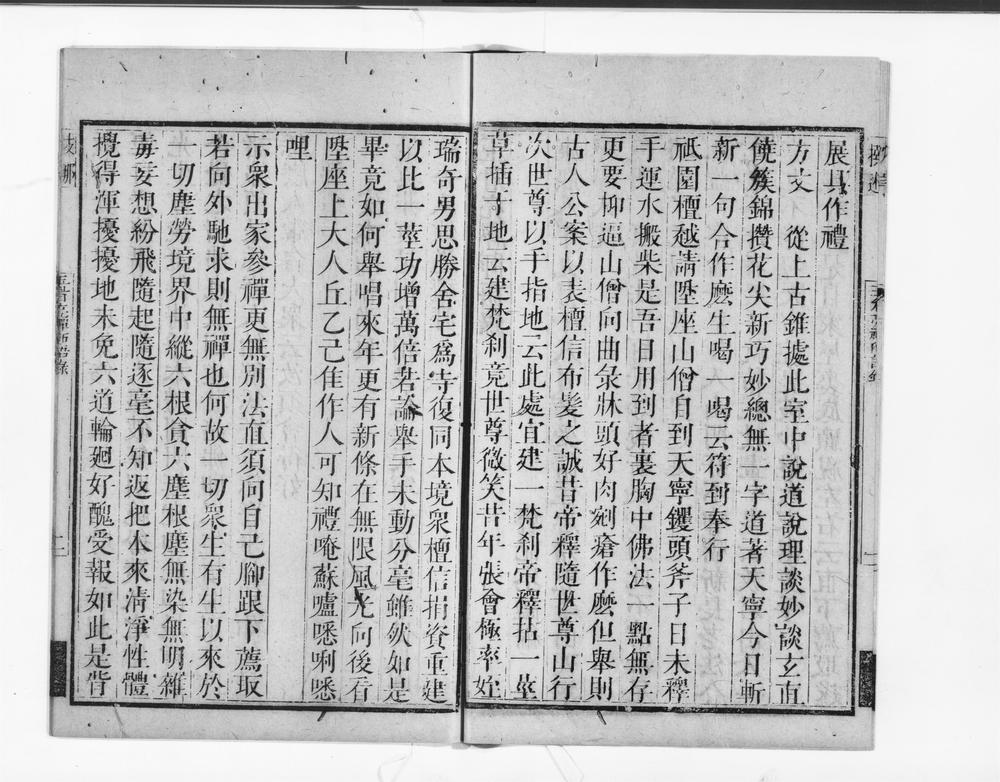 展具作禮
方丈 從上古錐據此室中說道說理談妙談玄直
饒簇錦攢花尖新巧妙總無一字道著天寧今日斬
新一句合作麽生喝一喝云符到奉行
祇園檀越請陞座山僧自到天寧钁頭斧子日未釋
手運水搬柴是吾日用到者裏胸中佛法一點無存
更要抑逼山僧向曲彔牀頭好肉剜瘡作麽但舉則
古人公案以表檀信布髮之誠昔帝釋隨世尊山行
次世尊以手指地云此處宜建一梵刹帝釋拈一莖
草插于地云建梵刹竟世尊微笑昔年張會極率姪
瑞奇男思勝舍宅爲寺復同本境衆檀信捐資重建
以比一莖功增萬倍若論舉手未動分毫雖然如是
畢竟如何舉唱來年更有新條在無限風光向後看
陞座上大人丘乙己隹作人可知禮唵蘇嚧悉唎悉
哩
示衆出家參禪更無別法直須向自己腳跟下薦取
若向外馳求則無禪也何故一切衆生有生以來於
一切塵勞境界中縱六根貪六塵根塵無染無明雜
毒妄想紛飛隨起隨逐毫不知返把本來淸淨性體
攪得渾擾擾地未免六道輪廻好醜受報如此是背